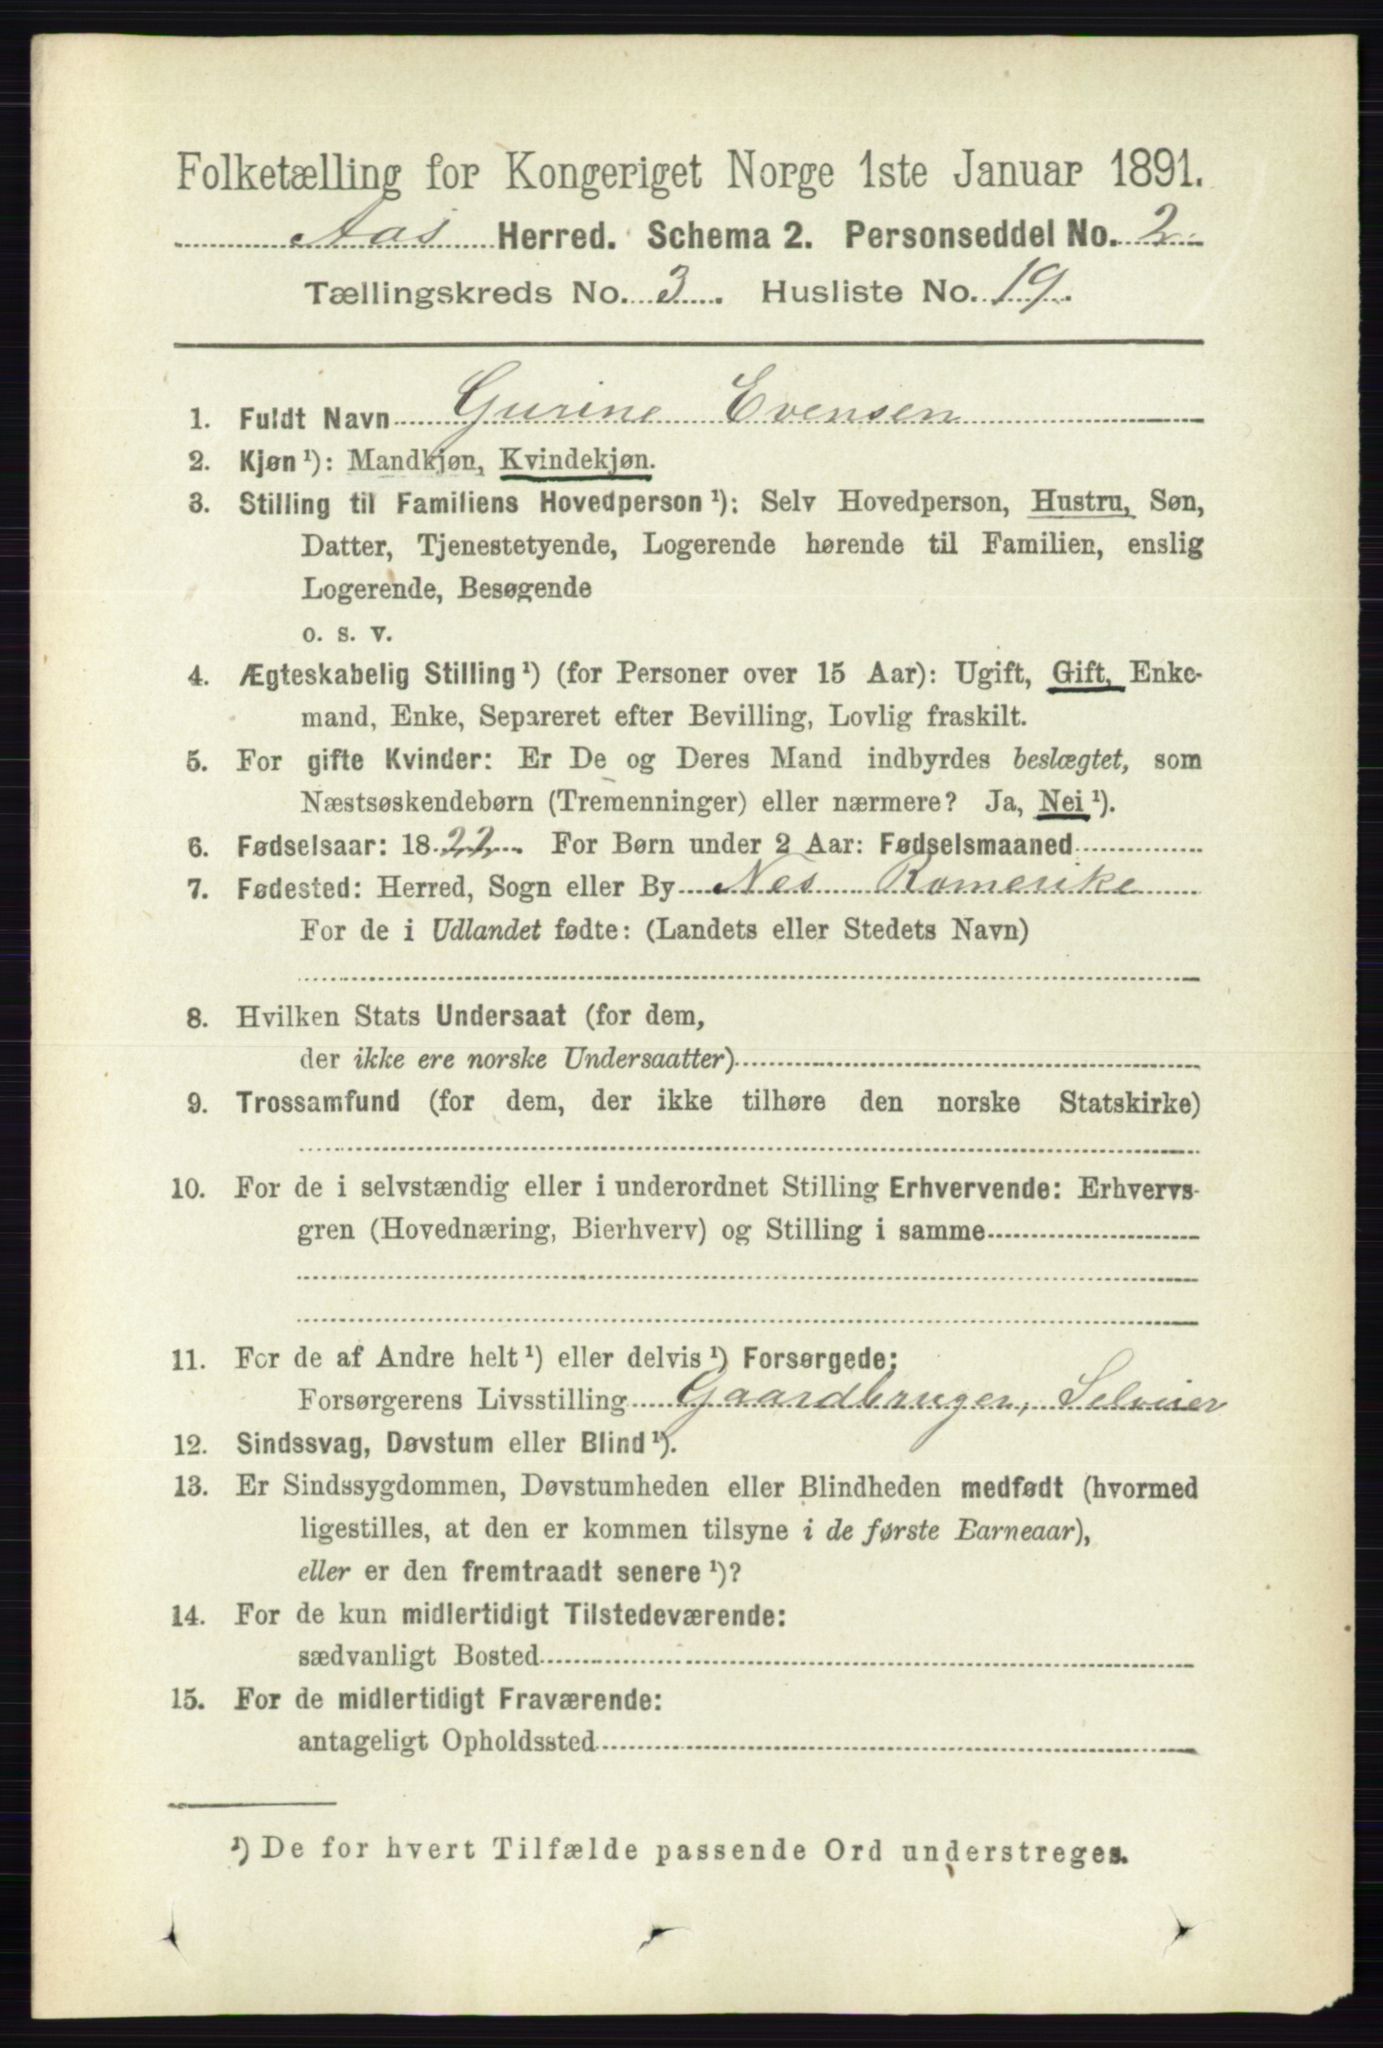 Folketælling for Kongeriget Norge 1ste Januar 1891.
Aas Herred. Schema 2. Personseddel No. 2
Tællingskreds No. 3. Husliste No. 19.
1. Fuldt Navn Gurine Evensen
2. Kjøn ¹): Mandkjøn, Kvindekjøn.
3. Stilling til Familiens Hovedperson ¹): Selv Hovedperson, Hustru, Søn,
Datter, Tjenestetyende, Logerende hørende til Familien, enslig
Logerende, Besøgende
o. s. v.
4. Ægteskabelig Stilling ¹) (for Personer over 15 Aar): Ugift, Gift, Enke-
mand, Enke, Separeret efter Bevilling, Lovlig fraskilt.
5. For gifte Kvinder: Er De og Deres Mand indbyrdes beslægtet, som
Næstsøskendebørn (Tremenninger) eller nærmere? Ja, Nei ¹).
6. Fødselsaar: 1822. For Børn under 2 Aar: Fødselsmaaned
7. Fødested: Herred, Sogn eller By Nes Romerike
For de i Udlandet fødte: (Landets eller Stedets Navn)
8. Hvilken Stats Undersaat (for dem,
der ikke ere norske Undersaatter)
9. Trossamfund (for dem, der ikke tilhøre den norske Statskirke)
10. For de i selvstændig eller i underordnet Stilling Erhvervende: Erhvervs-
gren (Hovednæring, Bierhverv) og Stilling i samme
11. For de af Andre helt ¹) eller delvis ¹) Forsørgede:
Forsørgerens Livsstilling Gaardbruger, Selveier
12. Sindssvag, Døvstum eller Blind ¹).
13. Er Sindssygdommen, Døvstumheden eller Blindheden medfødt (hvormed
ligestilles, at den er kommen tilsyne i de første Barneaar),
eller er den fremtraadt senere ¹)?
14. For de kun midlertidigt Tilstedeværende:
sædvanligt Bosted
15. For de midlertidigt Fraværende:
antageligt Opholdssted
¹) De for hvert Tilfælde passende Ord understreges.